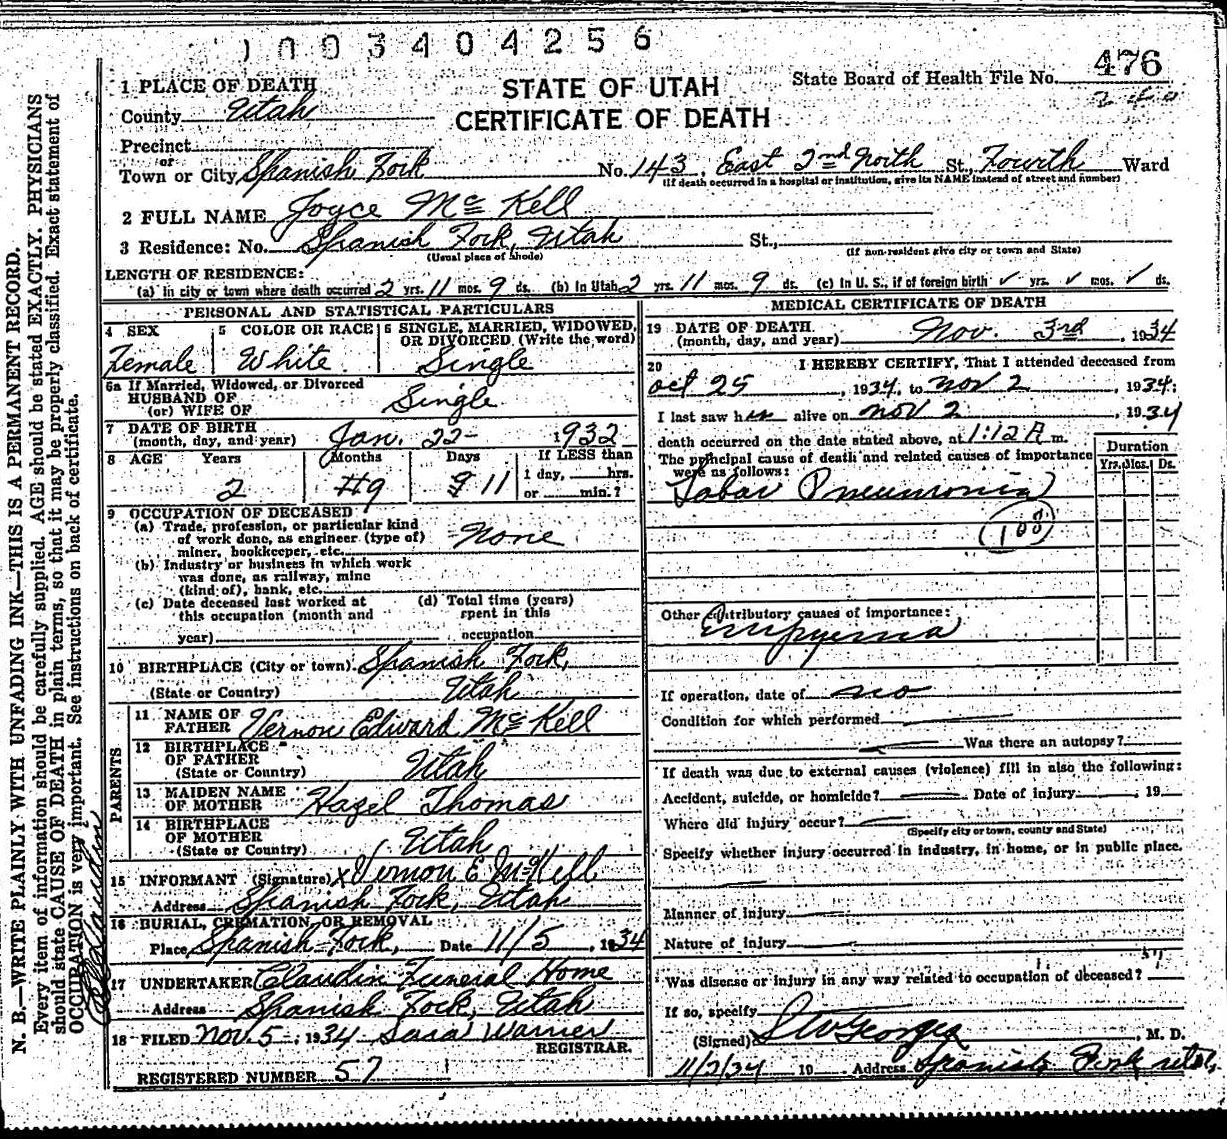 1003404256
STATE OF UTAH
CERTIFICATE OF DEATH
State Board of Health File No. 476
240
1 PLACE OF DEATH
County Utah
Precinct
or
Town or City Spanish Fork No. 143, East 2nd North St., Fourth Ward
(If death occurred in a hospital or institution, give its NAME instead of street and number)
2 FULL NAME Joyce McKell
3 Residence: No. Spanish Fork, Utah St.,
(Usual place of abode) (If non-resident give city or town and State)
LENGTH OF RESIDENCE:
(a) In city or town where death occurred 2 yrs. 11 mos. 9 ds. (b) In Utah 2 yrs. 11 mos. 9 ds. (c) In U. S., if of foreign birth ✓ yrs. ✓ mos. ✓ ds.
PERSONAL AND STATISTICAL PARTICULARS
4 SEX
Female
5 COLOR OR RACE
White
6 SINGLE, MARRIED, WIDOWED,
OR DIVORCED (Write the word)
Single
6a If Married, Widowed, or Divorced
HUSBAND OF
(or) WIFE OF Single
7 DATE OF BIRTH
(month, day, and year) Jan. 22 1932
8 AGE Years Months Days If LESS than
1 day, hrs.
or min.?
2 9 11
9 OCCUPATION OF DECEASED
(a) Trade, profession, or particular kind
of work done, as engineer (type of)
miner, bookkeeper, etc. None
(b) Industry or business in which work
was done, as railway, mine
(kind of), bank, etc.
(c) Date deceased last worked at
this occupation (month and
year)
(d) Total time (years)
spent in this
occupation
10 BIRTHPLACE (City or town) Spanish Fork,
(State or Country) Utah
PARENTS
11 NAME OF
FATHER Vernon Edward McKell
12 BIRTHPLACE
OF FATHER
(State or Country) Utah
13 MAIDEN NAME
OF MOTHER Hazel Thomas
14 BIRTHPLACE
OF MOTHER
(State or Country) Utah
15 INFORMANT (Signature) X Vernon E McKell
Address Spanish Fork, Utah
16 BURIAL, CREMATION, OR REMOVAL
Place Spanish Fork, Date 11/5, 1934
17 UNDERTAKER Claudin Funeral Home
Address Spanish Fork, Utah
18 FILED Nov. 5, 1934 Sara Warner
REGISTRAR.
REGISTERED NUMBER 57
MEDICAL CERTIFICATE OF DEATH
19 DATE OF DEATH
(month, day, and year) Nov. 3rd, 1934
20 I HEREBY CERTIFY, That I attended deceased from
Oct 25, 1934, to Nov 2, 1934:
I last saw h alive on Nov 2, 1934
death occurred on the date stated above, at 1:12 A m.
The principal cause of death and related causes of importance
were as follows:
Duration
Yrs. Mos. Ds.
Lobar Pneumonia
108
Other contributory causes of importance:
Empyema
If operation, date of no
Condition for which performed
Was there an autopsy?
If death was due to external causes (violence) fill in also the following:
Accident, suicide, or homicide? Date of injury , 19
Where did injury occur?
(Specify city or town, county and State)
Specify whether injury occurred in industry, in home, or in public place.
Manner of injury
Nature of injury
Was disease or injury in any way related to occupation of deceased?
If so, specify
(Signed) , M. D.
11/2/34 19 Address Spanish Fork Utah
N. B.—WRITE PLAINLY WITH UNFADING INK—THIS IS A PERMANENT RECORD.
Every item of information should be carefully supplied. AGE should be stated EXACTLY. PHYSICIANS
should state CAUSE OF DEATH in plain terms, so that it may be properly classified. Exact statement of
OCCUPATION is very important. See instructions on back of certificate.